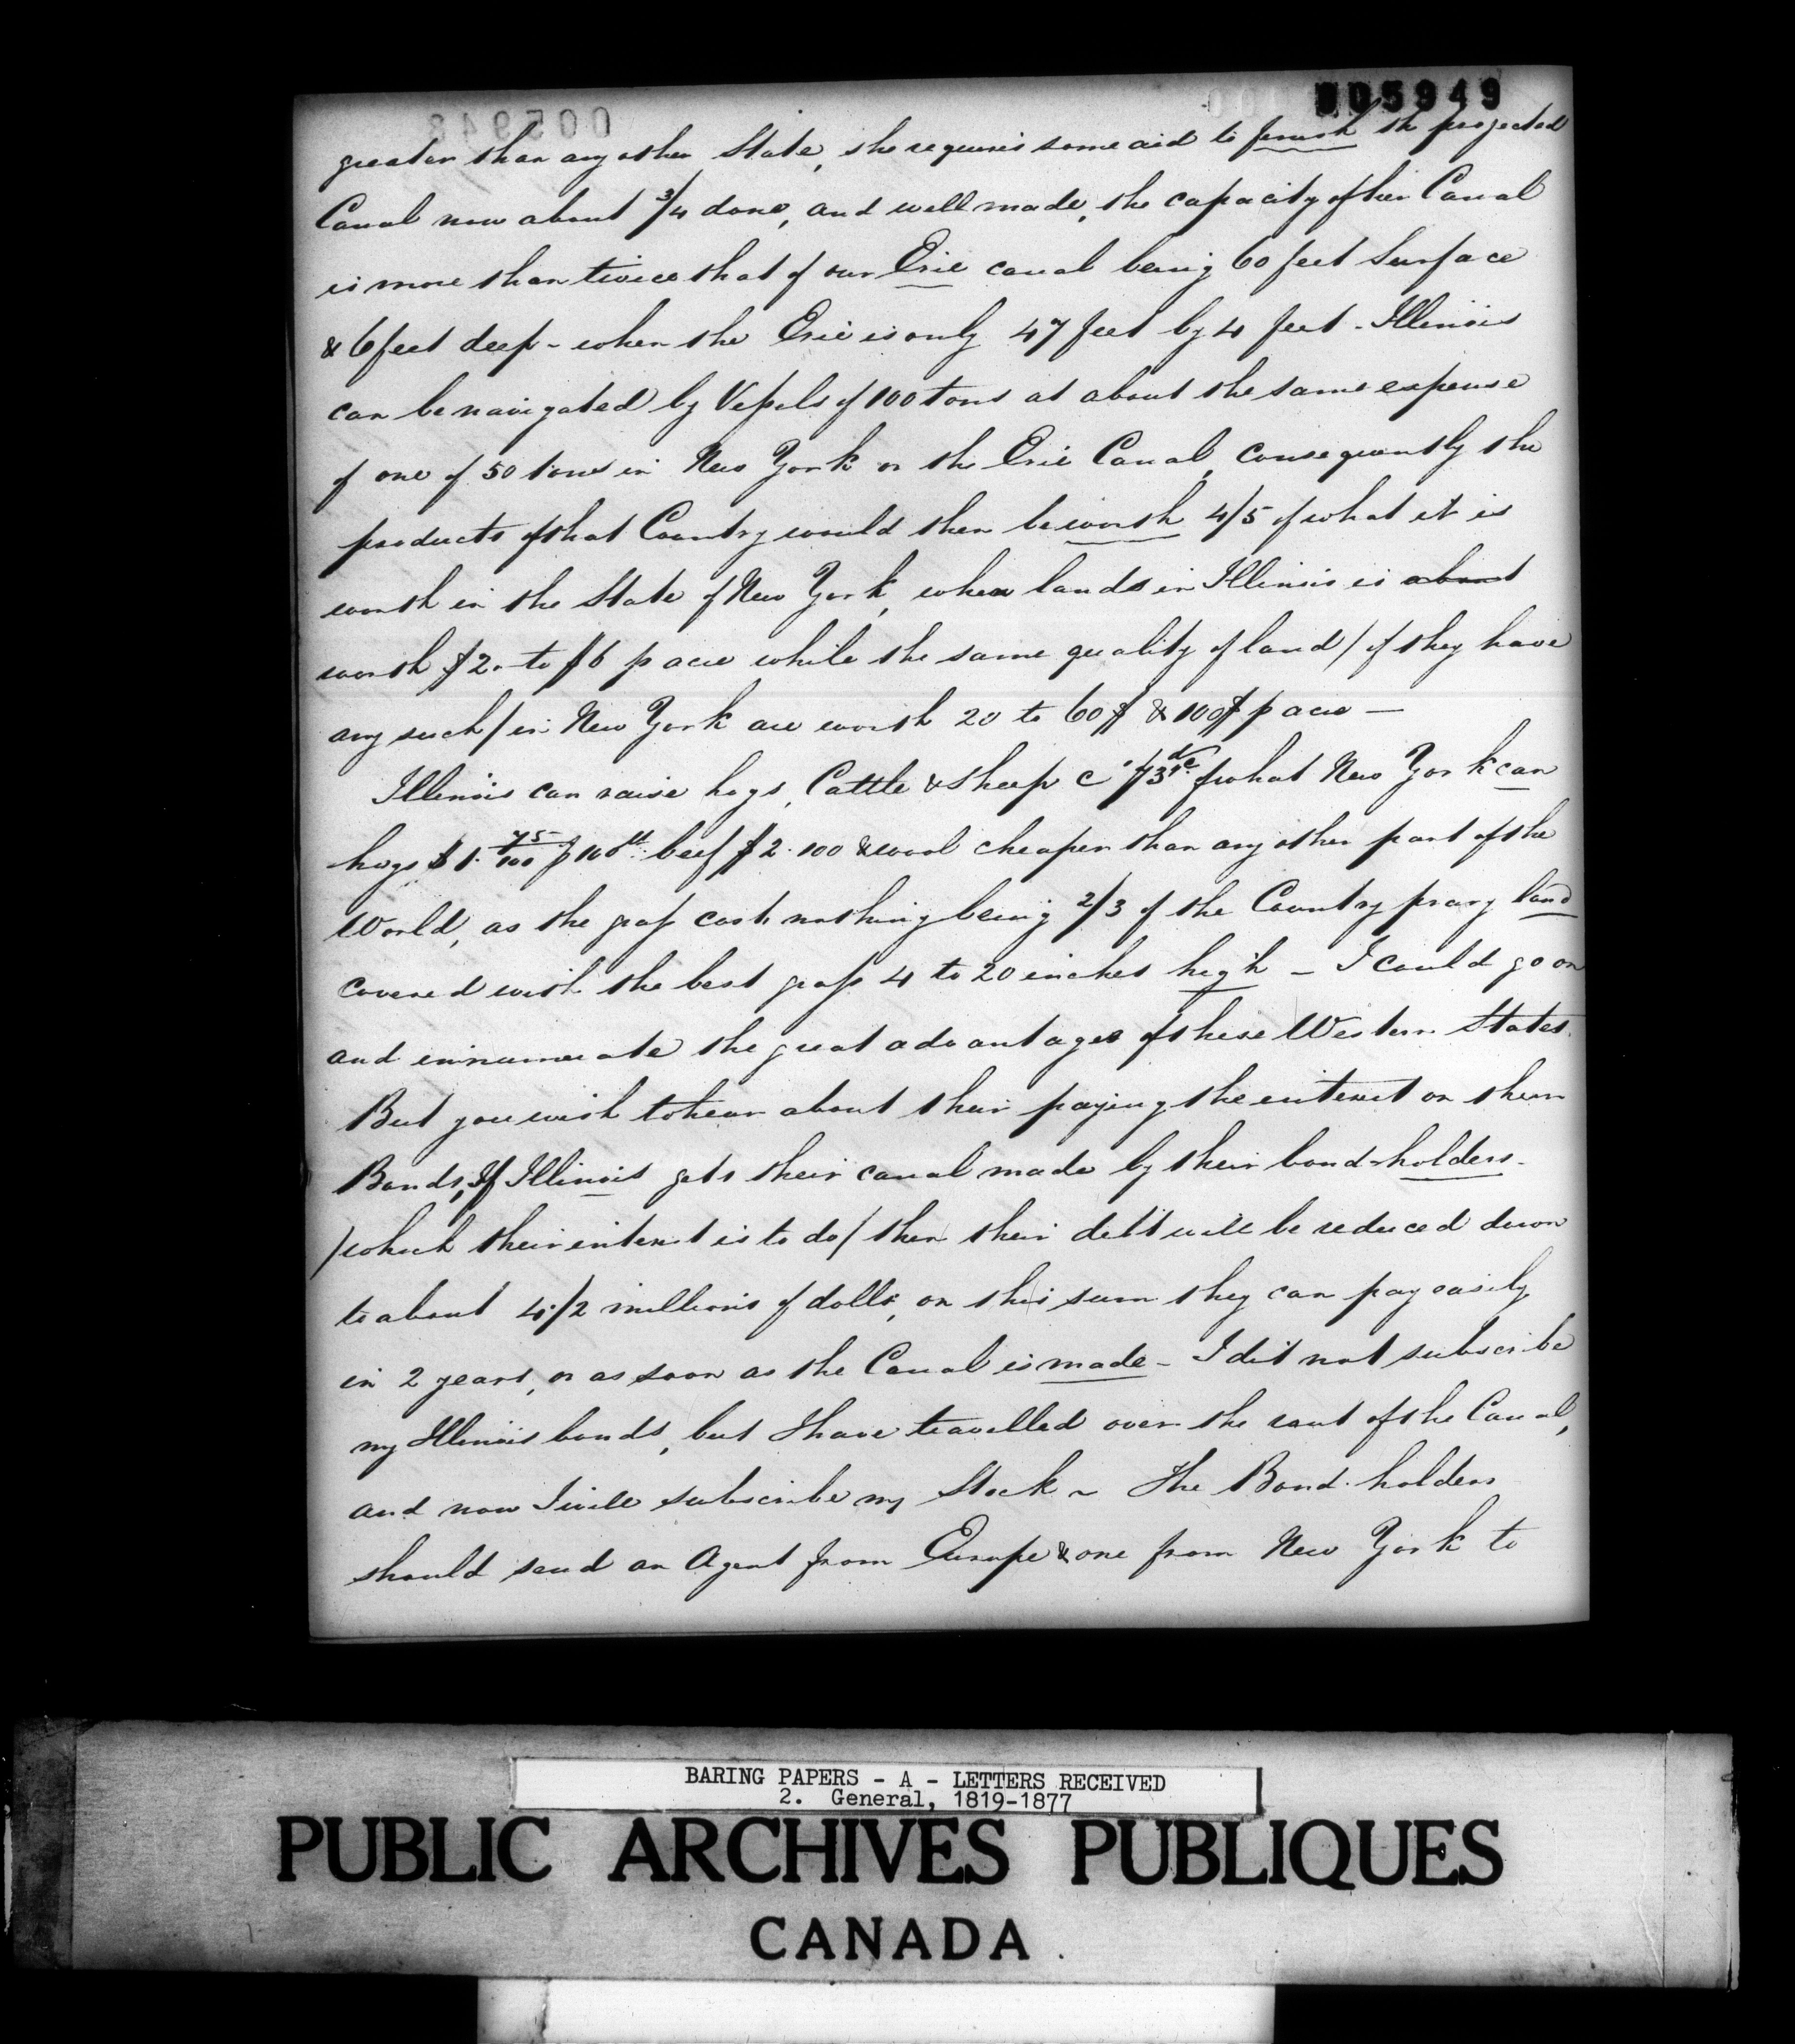 005949
greater than any other State, she requires some aid to finish the projected
Canal now about 3/4 done, and well made, the capacity of their Canal
is more than twice that of our Erie canal being 60 feet Surface
& 6 feet deep - when the Erie is only 47 feet by 4 feet - Illinois
can be navigated by Vessels of 100 tons at about the same expense
of one of 50 tons in New York or the Erie Canal, consequently the
products of that Country would then be worth 4/5 of what it is
worth in the State of New York, when lands in Illinois is about
worth $2. to $6 p acre while the same quality of land / if they have
any such / in New York are worth 20 to 60$ & 100$ p acre —
Illinois can raise hogs, Cattle & sheep 1/3 of what New York can
hogs $1. 75/100 p 100 beef $2. 100 & wool cheaper than any other part of the
World, as the grass costs nothing being 2/3 of the Country prary land
covered with the best grass 4 to 20 inches high - I could go on
and ennumerate the great advantages of these Western States.
But you wish to hear about their paying the interest on their
Bonds, If Illinois gets their canal made by their bond-holders -
/ which their interest is to do / then their debt will be reduced down
to about 4 1/2 millions of dolls, on this sum they can pay easily
in 2 years, or as soon as the Canal is made - I dit not subscribe
my Illinois bonds, but I have travelled over the rout of the Canal,
and now I will subscribe my Stock - The Bond-holders
should send an Agent from Europe & one from New York to
BARING PAPERS - A - LETTERS RECEIVED
2. General, 1819-1877
PUBLIC ARCHIVES PUBLIQUES
CANADA